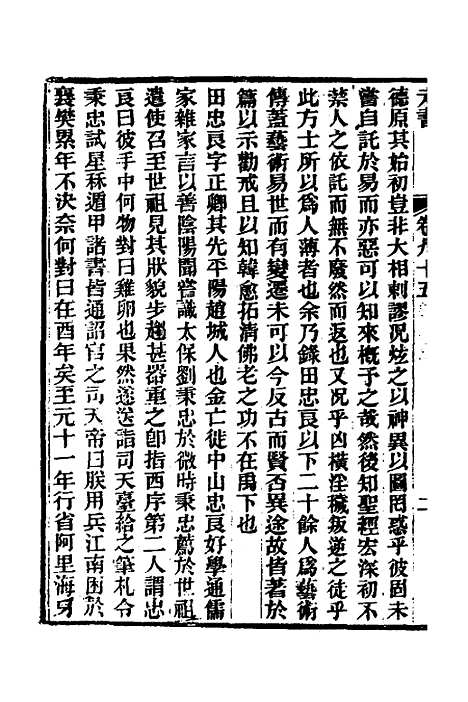 元書
卷九十五
二
德原其始初豈非大相剌謬況炫之以神異以圖罔惑乎彼固未
嘗自託於易而亦惡可以知來槪予之哉然後知聖經宏深初不
禁人之依託而無不廢然而返也又況乎凶橫淫穢叛逆之徒乎
此方士所以爲人薄者也余乃錄田忠良以下二十餘人爲藝術
傳蓋藝術易世而有變遷未可以今反古而賢否異途故皆著於
篇以示勸戒且以知韓愈拓淸佛老之功不在禹下也
田忠良字正卿其先平陽趙城人也金亡徙中山忠良好學通儒
家雜家言以善陰陽聞嘗識太保劉秉忠於微時秉忠薦於世祖
遣使召至世祖見其狀貌步趨甚器重之卽指西序第二人謂忠
良曰彼手中何物對曰雞卵也果然遂送詣司天臺給之筆札令
秉忠試星秝遁甲諸書皆通詔官之司天帝曰朕用兵江南困於
襄樊累年不決奈何對曰在酉年矣至元十一年行省阿里海牙